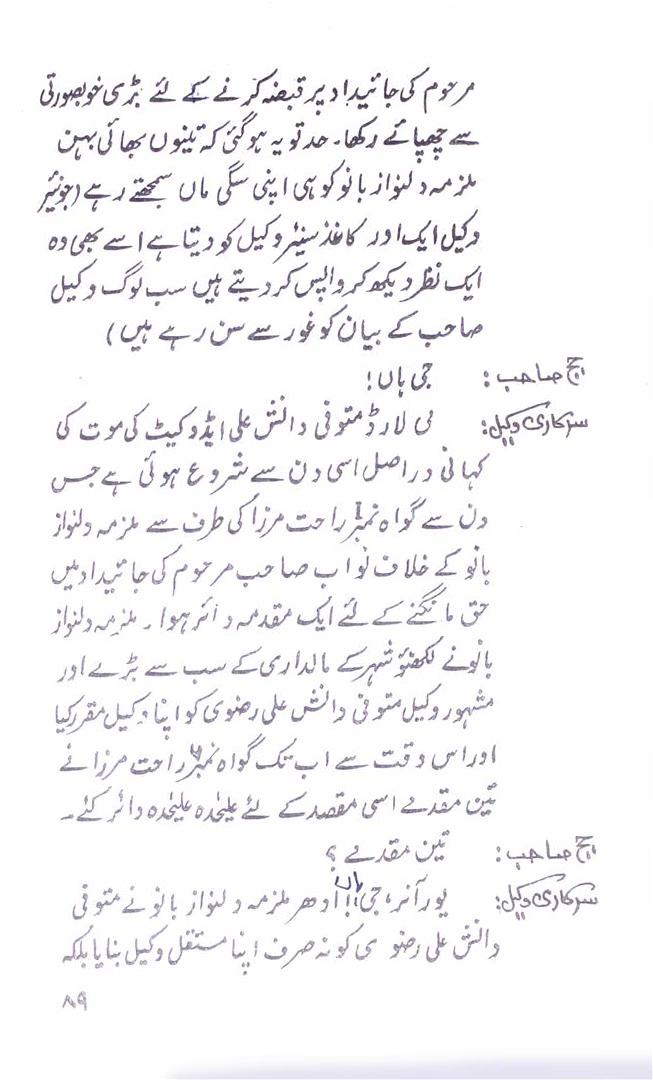 مرحوم کی جائیداد پر قبضہ کرنے کے لئے بڑی خوبصورتی
سے چھپائے رکھا۔ حد تو یہ ہو گئی کہ تینوں بھائی بہن
ملزمہ دلنواز بانو کو ہی اپنی سگی ماں سمجھتے رہے (جونئیر
وکیل ایک اور کاغذ سینئر وکیل کو دیتا ہے اسے بھی وہ
ایک نظر دیکھ کر واپس کر دیتے ہیں سب لوگ وکیل
صاحب کے بیان کو غور سے سن رہے ہیں)
جج صاحب: جی ہاں!
سرکاری وکیل: می لارڈ متوفی دانش علی ایڈوکیٹ کی موت کی
کہانی دراصل اسی دن سے شروع ہوئی ہے جس
دن سے گواہ نمبر راحت مرزا کی طرف سے ملزمہ دلنواز
بانو کے خلاف نواب صاحب مرحوم کی جائیداد میں
حق مانگنے کے لئے ایک مقدمہ دائر ہوا۔ ملزمہ دلنواز
بانو نے لکھنؤ شہر کے مالداری کے سب سے بڑے اور
مشہور وکیل متوفی دانش علی رضوی کو اپنا وکیل مقرر کیا
اور اس وقت سے اب تک گواہ نمبر راحت مرزا نے
تین مقدمے اسی مقصد کے لئے علیحٰدہ علیحٰدہ دائر کئے۔
جج صاحب: تین مقدمے؟
سرکاری وکیل: یور آنر، جی ہاں! ادھر ملزمہ دلنواز بانو نے متوفی
دانش علی رضوی کو نہ صرف اپنا مستقل وکیل بنایا بلکہ
۸۹